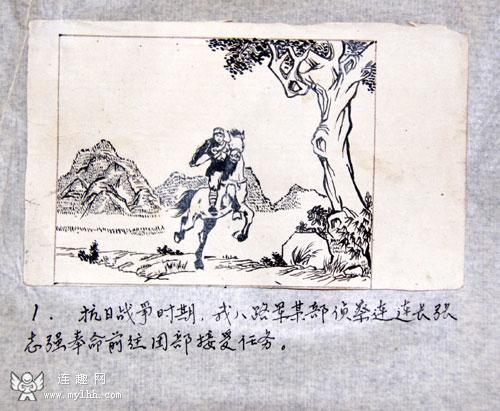 1. 抗日战争时期，我八路军某部侦察连连长张
志强奉命前往团部接受任务。
连趣网
www.ylhh.com